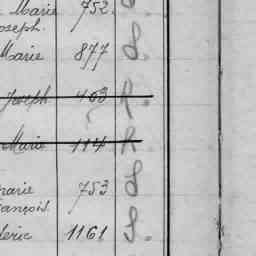 Marie 752. S
oseph.
Marie 877 S.
Joseph 403 R.
Marie 114 R.
marie 753 S
rançois.
deric 1161 S.